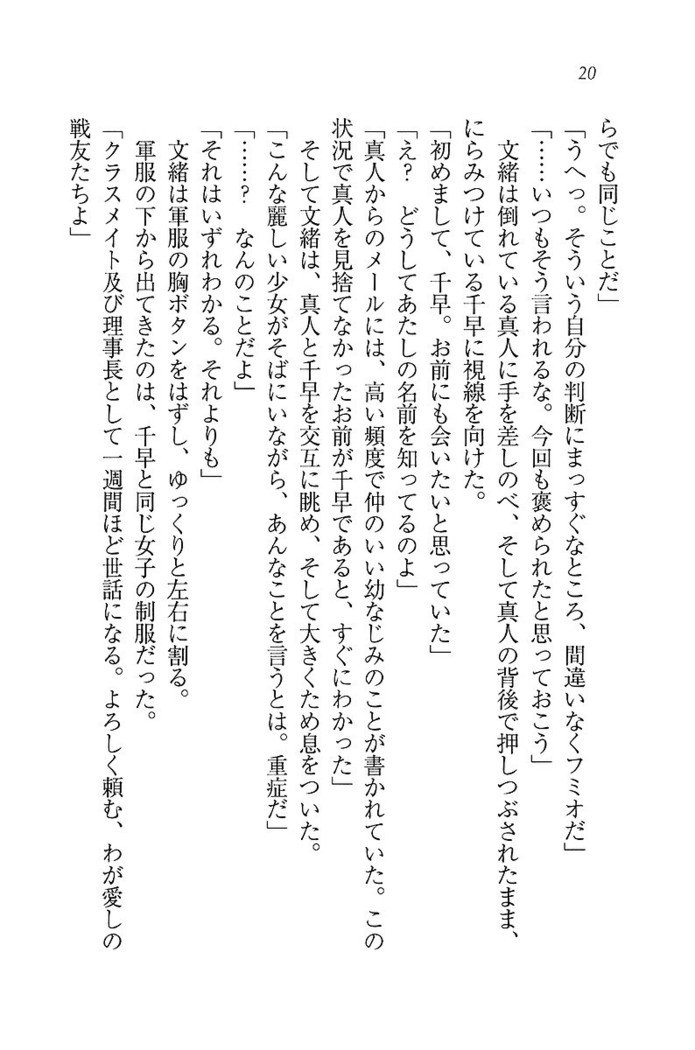 20
らでも同じことだ」
「うへっ。そういう自分の判断にまっすぐなところ、間違いなくフミオだ」
「……いつもそう言われるな。今回も褒められたと思っておこう」
文緒は倒れている真人に手を差しのべ、そして真人の背後で押しつぶされたまま、
にらみつけている千早に視線を向けた。
「初めまして、千早。お前にも会いたいと思っていた」
「え？　どうしてあたしの名前を知ってるのよ」
「真人からのメールには、高い頻度で仲のいい幼なじみのことが書かれていた。この
状況で真人を見捨てなかったお前が千早であると、すぐにわかった」
そして文緒は、真人と千早を交互に眺め、そして大きくため息をついた。
「こんな麗しい少女がそばにいながら、あんなことを言うとは。重症だ」
「……？　なんのことだよ」
「それはいずれわかる。それよりも」
文緒は軍服の胸ボタンをはずし、ゆっくりと左右に割る。
軍服の下から出てきたのは、千早と同じ女子の制服だった。
「クラスメイト及び理事長として一週間ほど世話になる。よろしく頼む、わが愛しの
戦友たちよ」